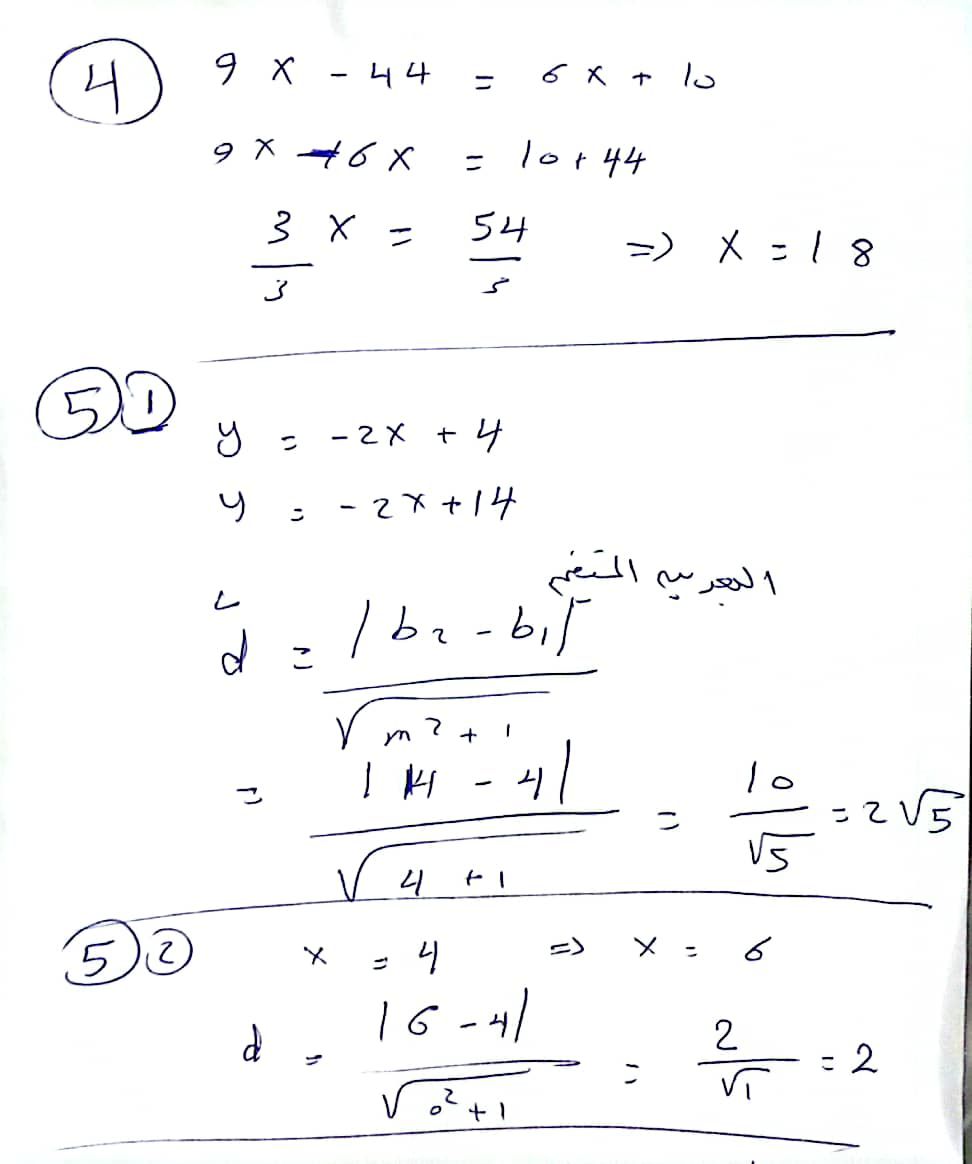 4
9x - 44 = 6x + 10
9x - 6x = 10 + 44
3x/3 = 54/3 => x = 18
5 1
y = -2x + 4
y = -2x + 14
d = |b2 - b1| / √(m² + 1)
= |14 - 4| / √(4 + 1) = 10/√5 = 2√5
5 2
x = 4 => x = 6
d = |6 - 4| / √(0² + 1) = 2/√1 = 2